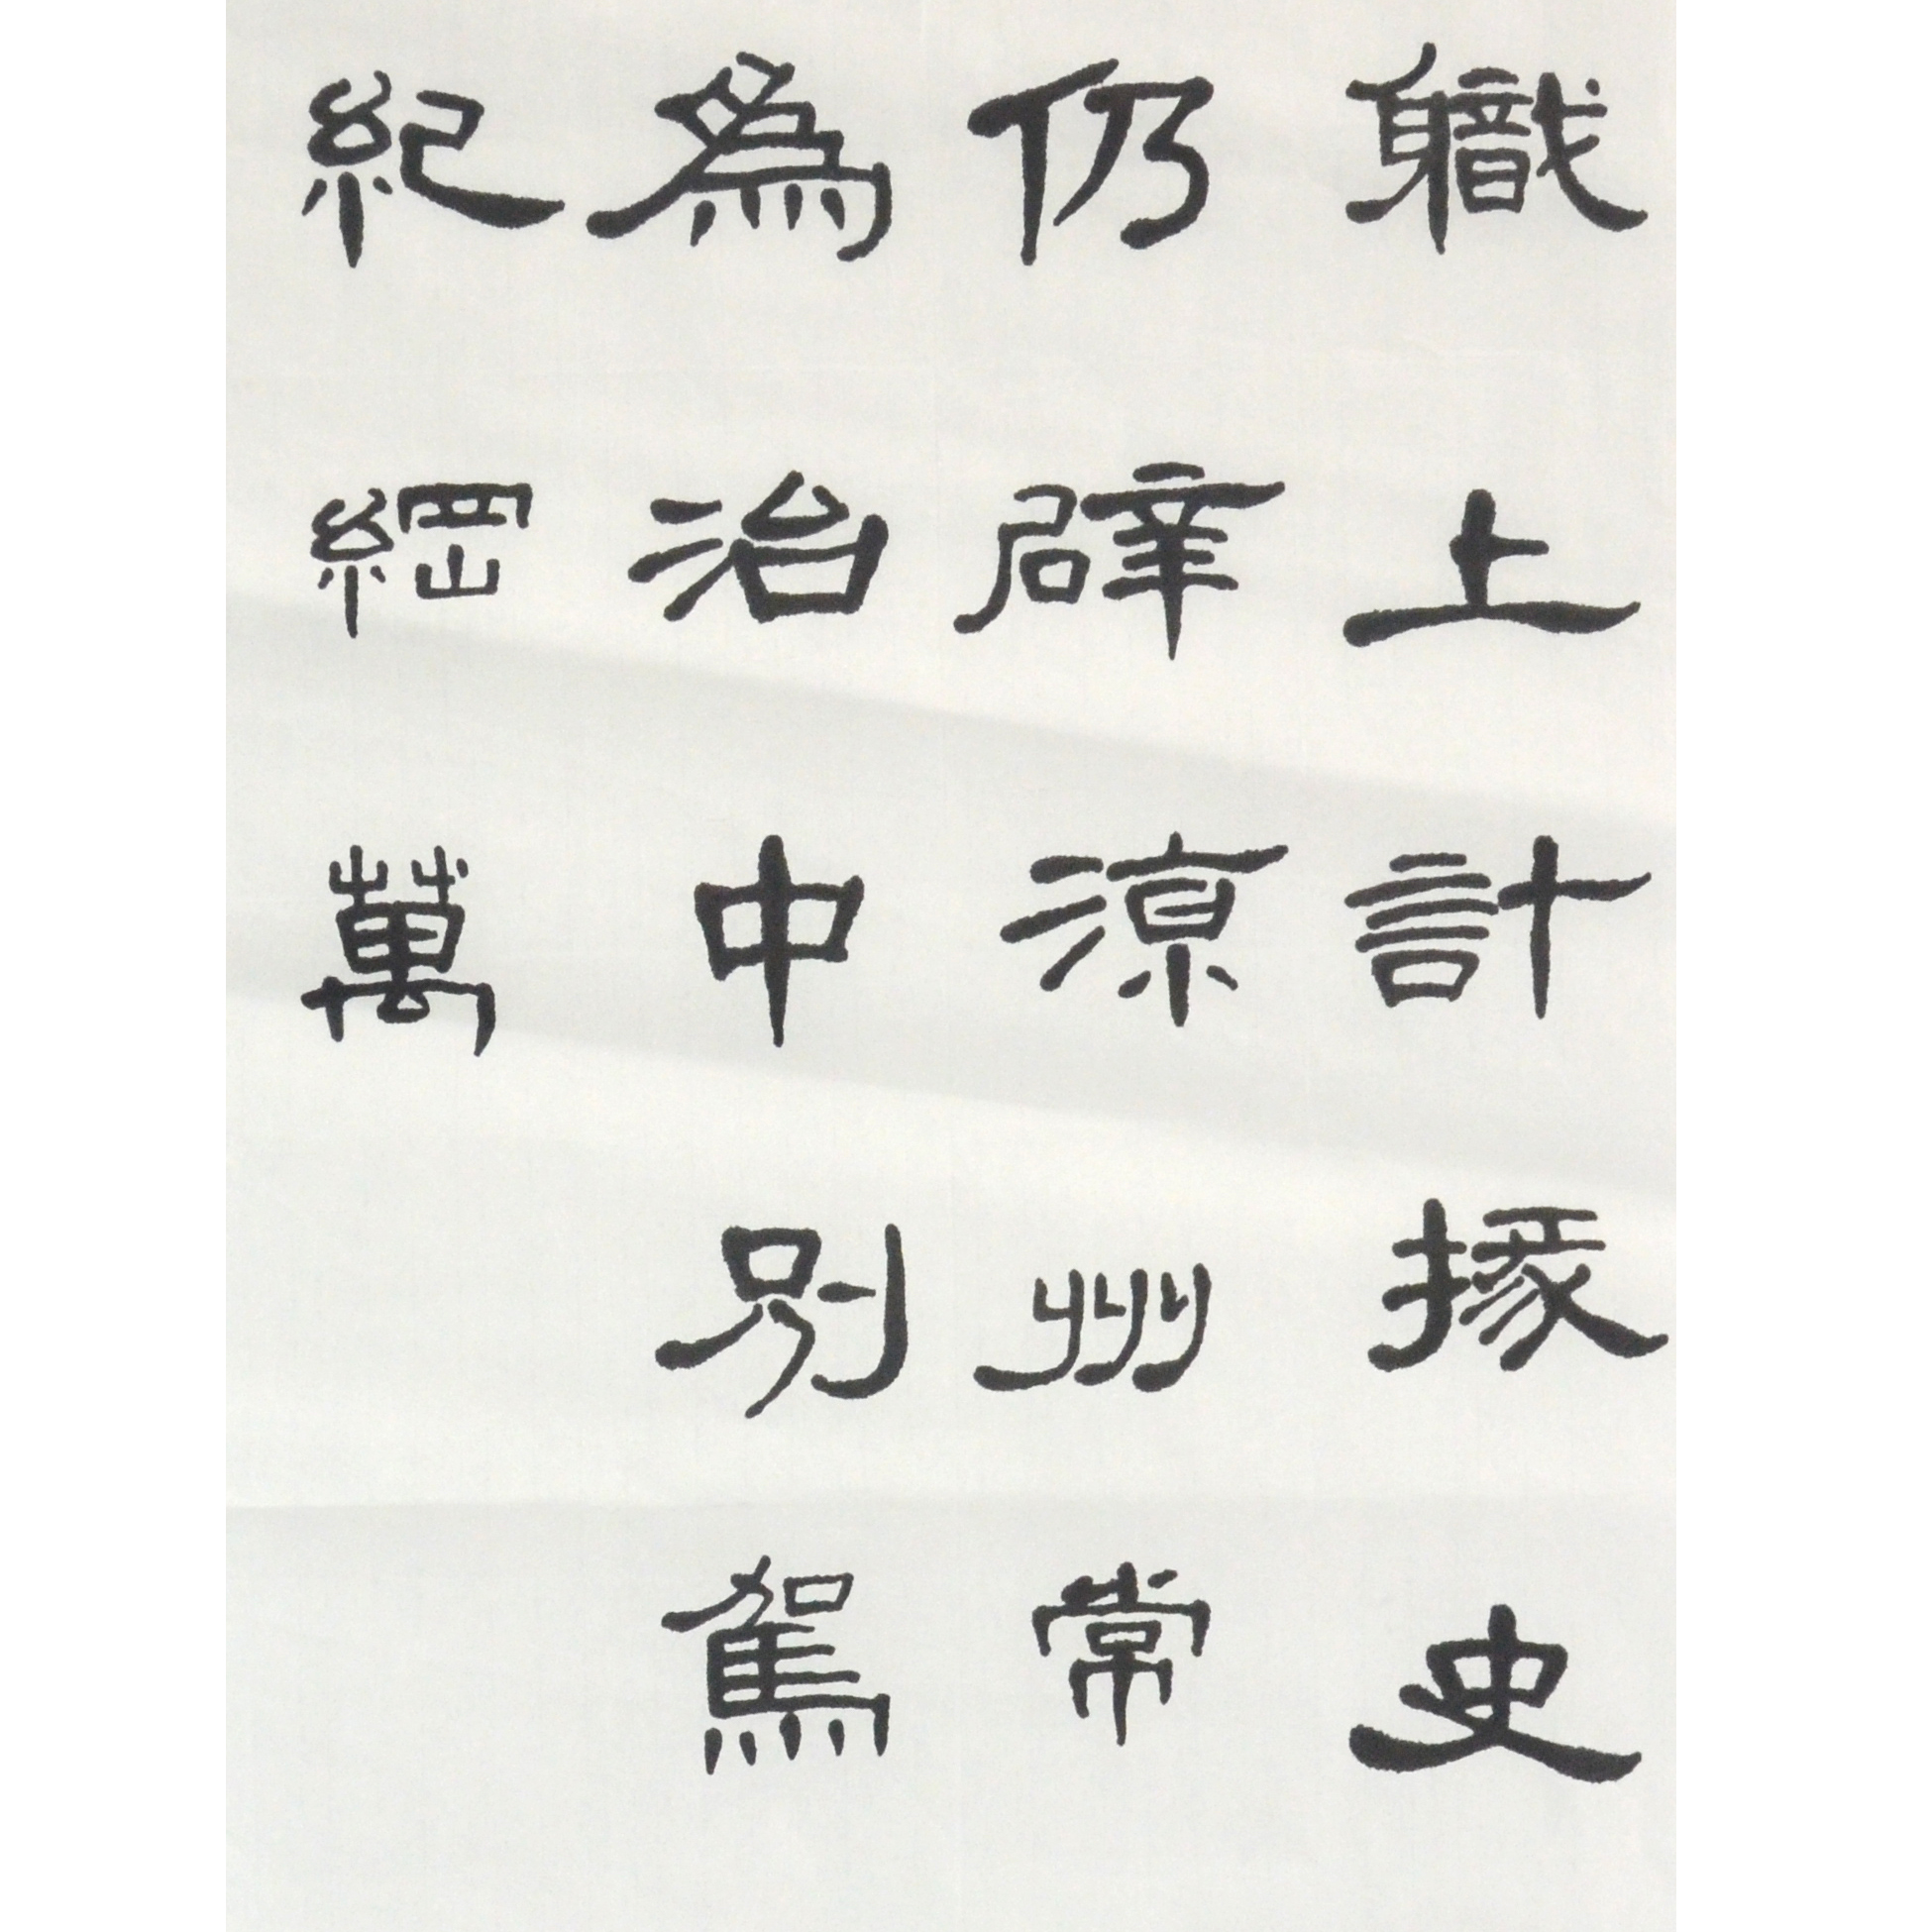 職上計掾史
仍辟涼州常
為治中別駕
紀綱萬